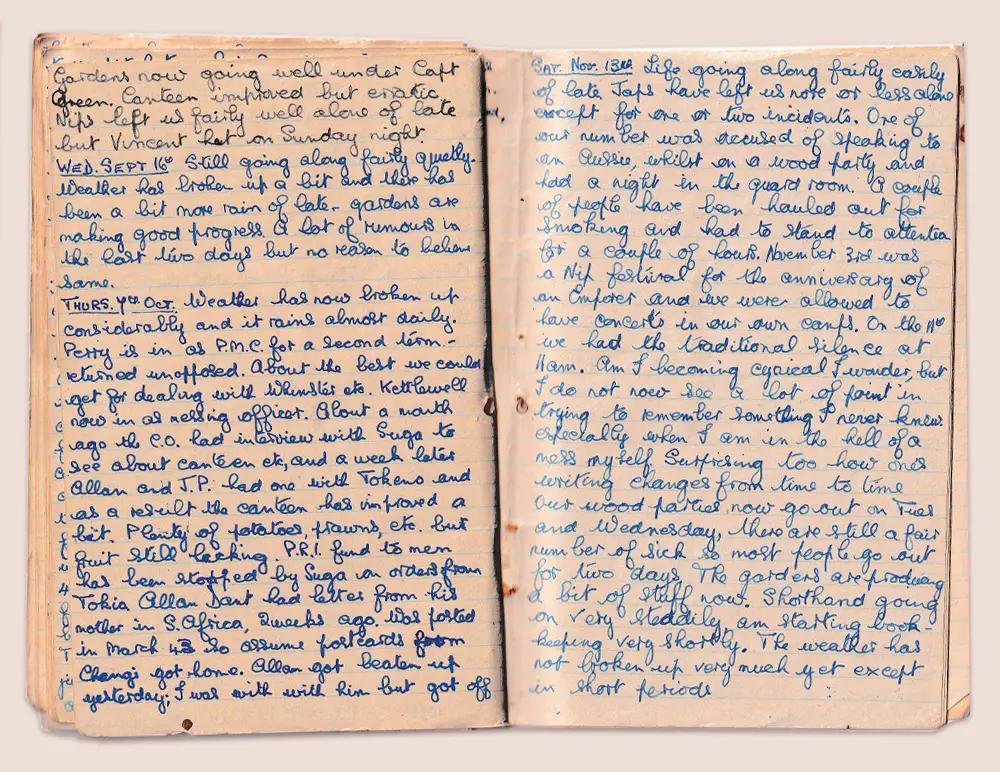 Gardens now going well under Capt
Green. Canteen improved but erratic.
Nips left us fairly well alone of late
but Vincent het on Sunday night.
WED. SEPT 16th Still going along fairly quietly.
Weather has broken up a bit and there has
been a bit more rain of late - gardens are
making good progress. A lot of rumours in
the last two days but no reason to believe
same.
THURS. 7th OCT. Weather has now broken up
considerably and it rains almost daily.
Perry is in as P.M.C. for a second term -
returned unopposed. About the best we could
get for dealing with Whimster etc. Kettlewell
now in as messing officer. About a month
ago the C.O. had interview with Suga to
see about canteen etc, and a week later
Allan and J.P. had one with Tokeno and
as a result the canteen has improved a
bit. Plenty of potatoes, prawns, etc. but
fruit still lacking. P.R.I. fund to men
has been stopped by Suga on orders from
Tokia Allan Dant had letter from his
mother in S. Africa, 2 weeks ago. Was posted
in March 43 so assume postcards from
Changi got home. Allan got beaten up
yesterday; I was with with him but got off
SAT. NOV. 13th Life going along fairly easily
of late Japs have left us more or less alone
except for one or two incidents. One of
our number was accused of speaking to
an Aussie, whilst on a wood party and
had a night in the guard room. A couple
of people have been hauled out for
smoking and had to stand to attention
for a couple of hours. November 3rd was
a Nip festival for the anniversary of
an Emporer and we were allowed to
have concerts in our own camps. On the 11th
we had the traditional silence at
11am. Am I becoming cynical I wonder, but
I do not now see a lot of point in
trying to remember something I never knew
especially when I am in the hell of a
mess myself Surprising too how ones
writing changes from time to time
Our wood parties now go out on Tues
and Wednesday, there are still a fair
number of sick so most people go out
for two days. The gardens are producing
a bit of stuff now. Shorthand going
on very steadily, am starting book-
keeping very shortly. The weather has
not broken up very much yet except
in short periods